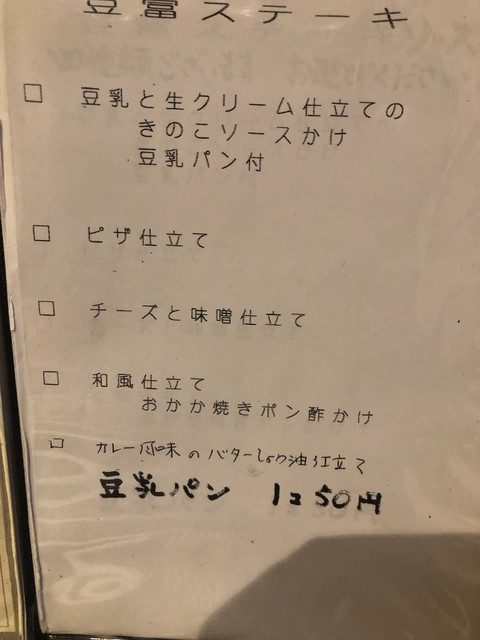 豆富ステーキ
□ 豆乳と生クリーム仕立ての
きのこソースかけ
豆乳パン付
□ ピザ仕立て
□ チーズと味噌仕立て
□ 和風仕立て
おかか焼きポン酢かけ
□ カレー風味のバターしょう油仕立て
豆乳パン 1コ50円